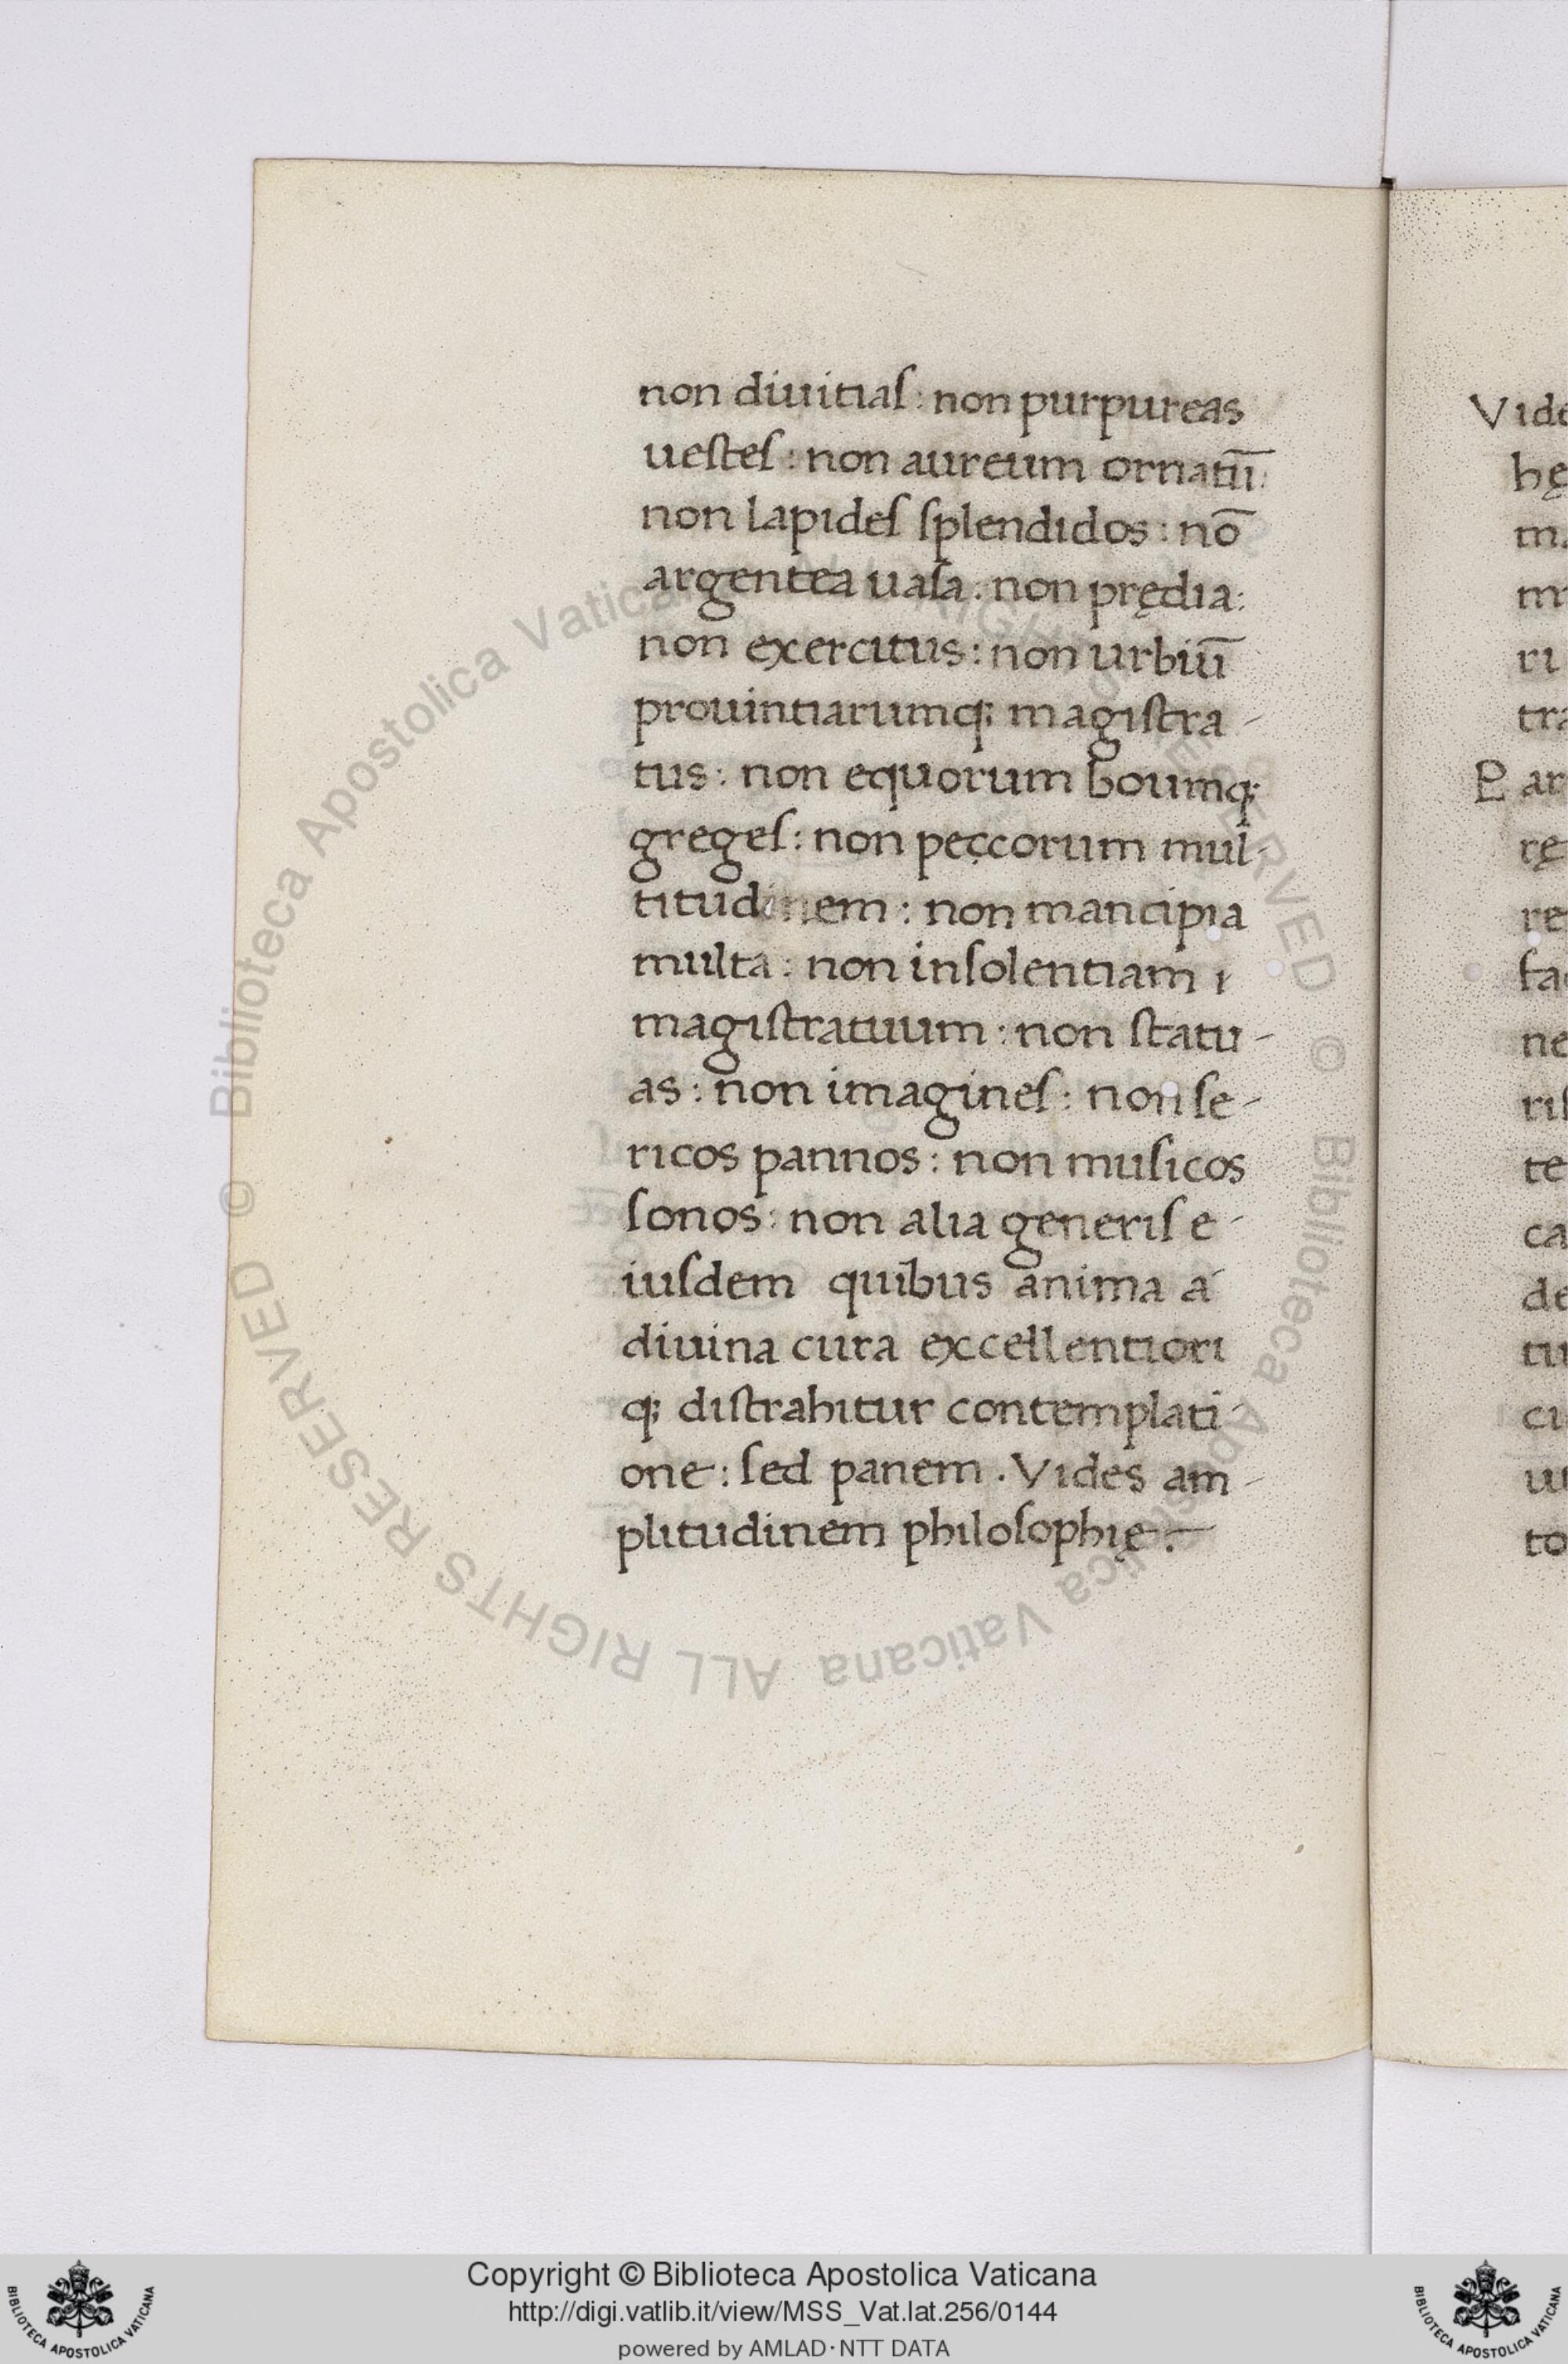 non diuitiaſ : non purpureas
ueſteſ : non aureum ornatū
non lapideſ ſplendidos : nō
argentea uaſa : non prędia :
non exercitus : non urbiū
prouintiarumq; magiſtra-
tus : non equorum boumq;
gregeſ : non peccorum mul-
titudinem : non mancipia
multa : non inſolentiam ı
magiſtratuum : non ſtatu-
as : non imagineſ : non ſe-
ricos pannos : non muſicos
ſonos : non alia generiſ e-
iuſdem quibus anima a
diuina cura excellentiori
q; diſtrahitur contemplati-
one : ſed panem . Vides am-
plitudinem philoſophię .
Vide
hę
ri
tra
P ar
rę
re
fa
ne
riſ
te
ca
de
cı
to
© Biblioteca Apostolica Vaticana ALL RIGHTS RESERVED
© Biblioteca Apostolica Vaticana ALL RIGHTS RESERVED
Copyright © Biblioteca Apostolica Vaticana
http://digi.vatlib.it/view/MSS_Vat.lat.256/0144
powered by AMLAD·NTT DATA
BIBLIOTECA APOSTOLICA VATICANA
BIBLIOTECA APOSTOLICA VATICANA